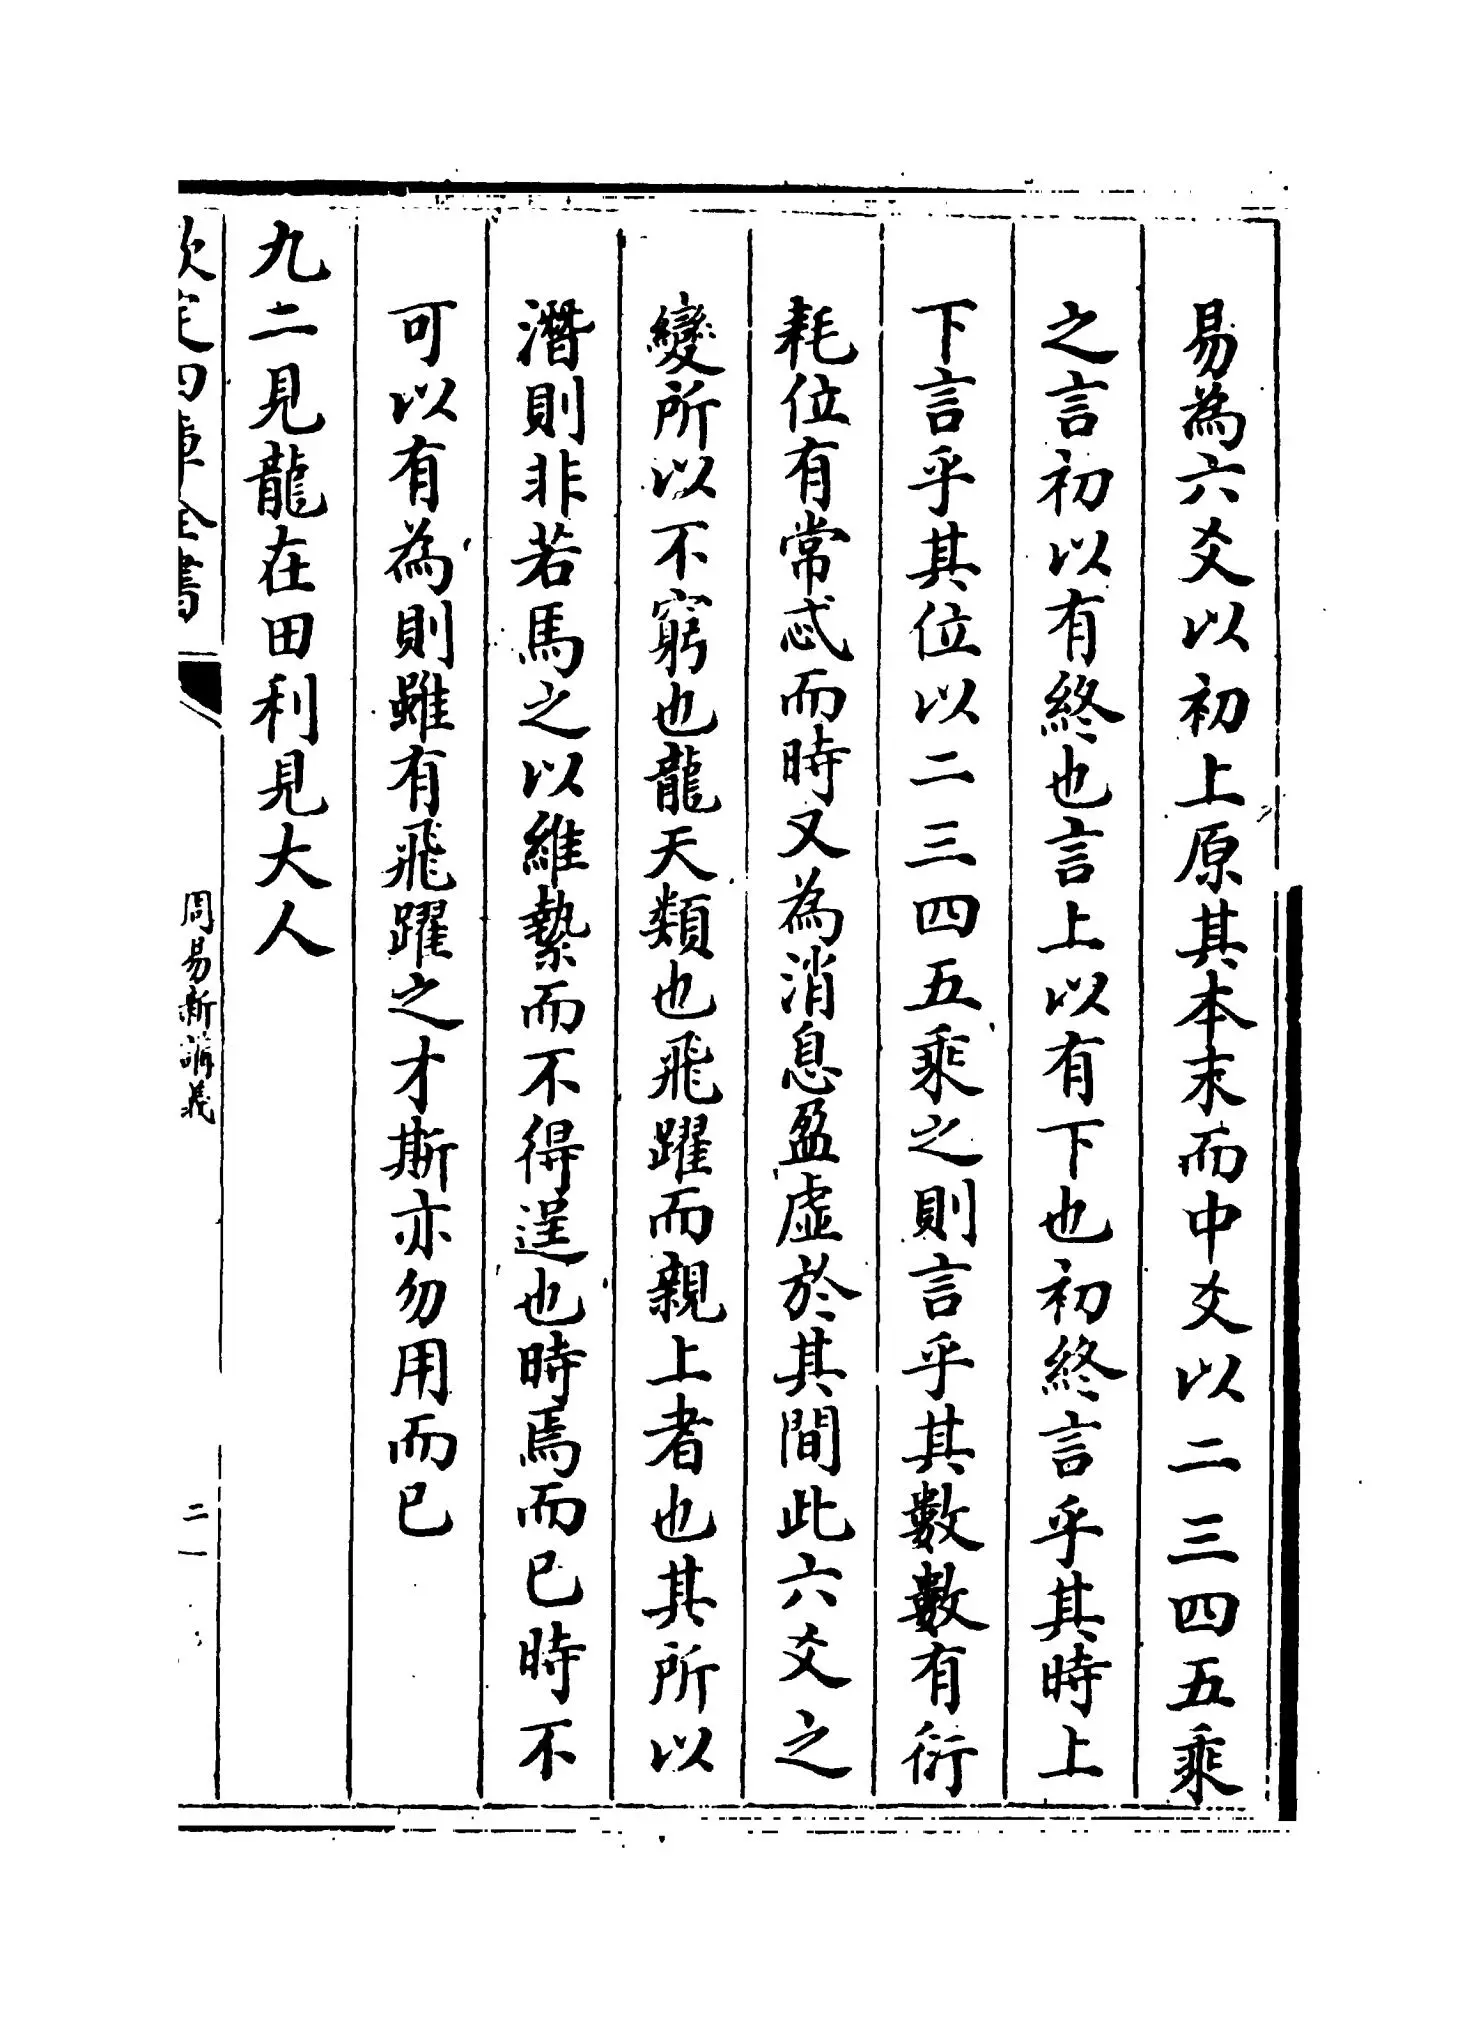 易為六爻以初上原其本末而中爻以二三四五乘
之言初以有終也言上以有下也初終言乎其時上
下言乎其位以二三四五乘之則言乎其數數有衍
耗位有常忒而時又為消息盈虛於其間此六爻之
變所以不窮也龍天類也飛躍而親上者也其所以
潛則非若馬之以維縶而不得逞也時焉而已時不
可以有為則雖有飛躍之才斯亦勿用而已
九二見龍在田利見大人
欽定四庫全書
周易新講義
二